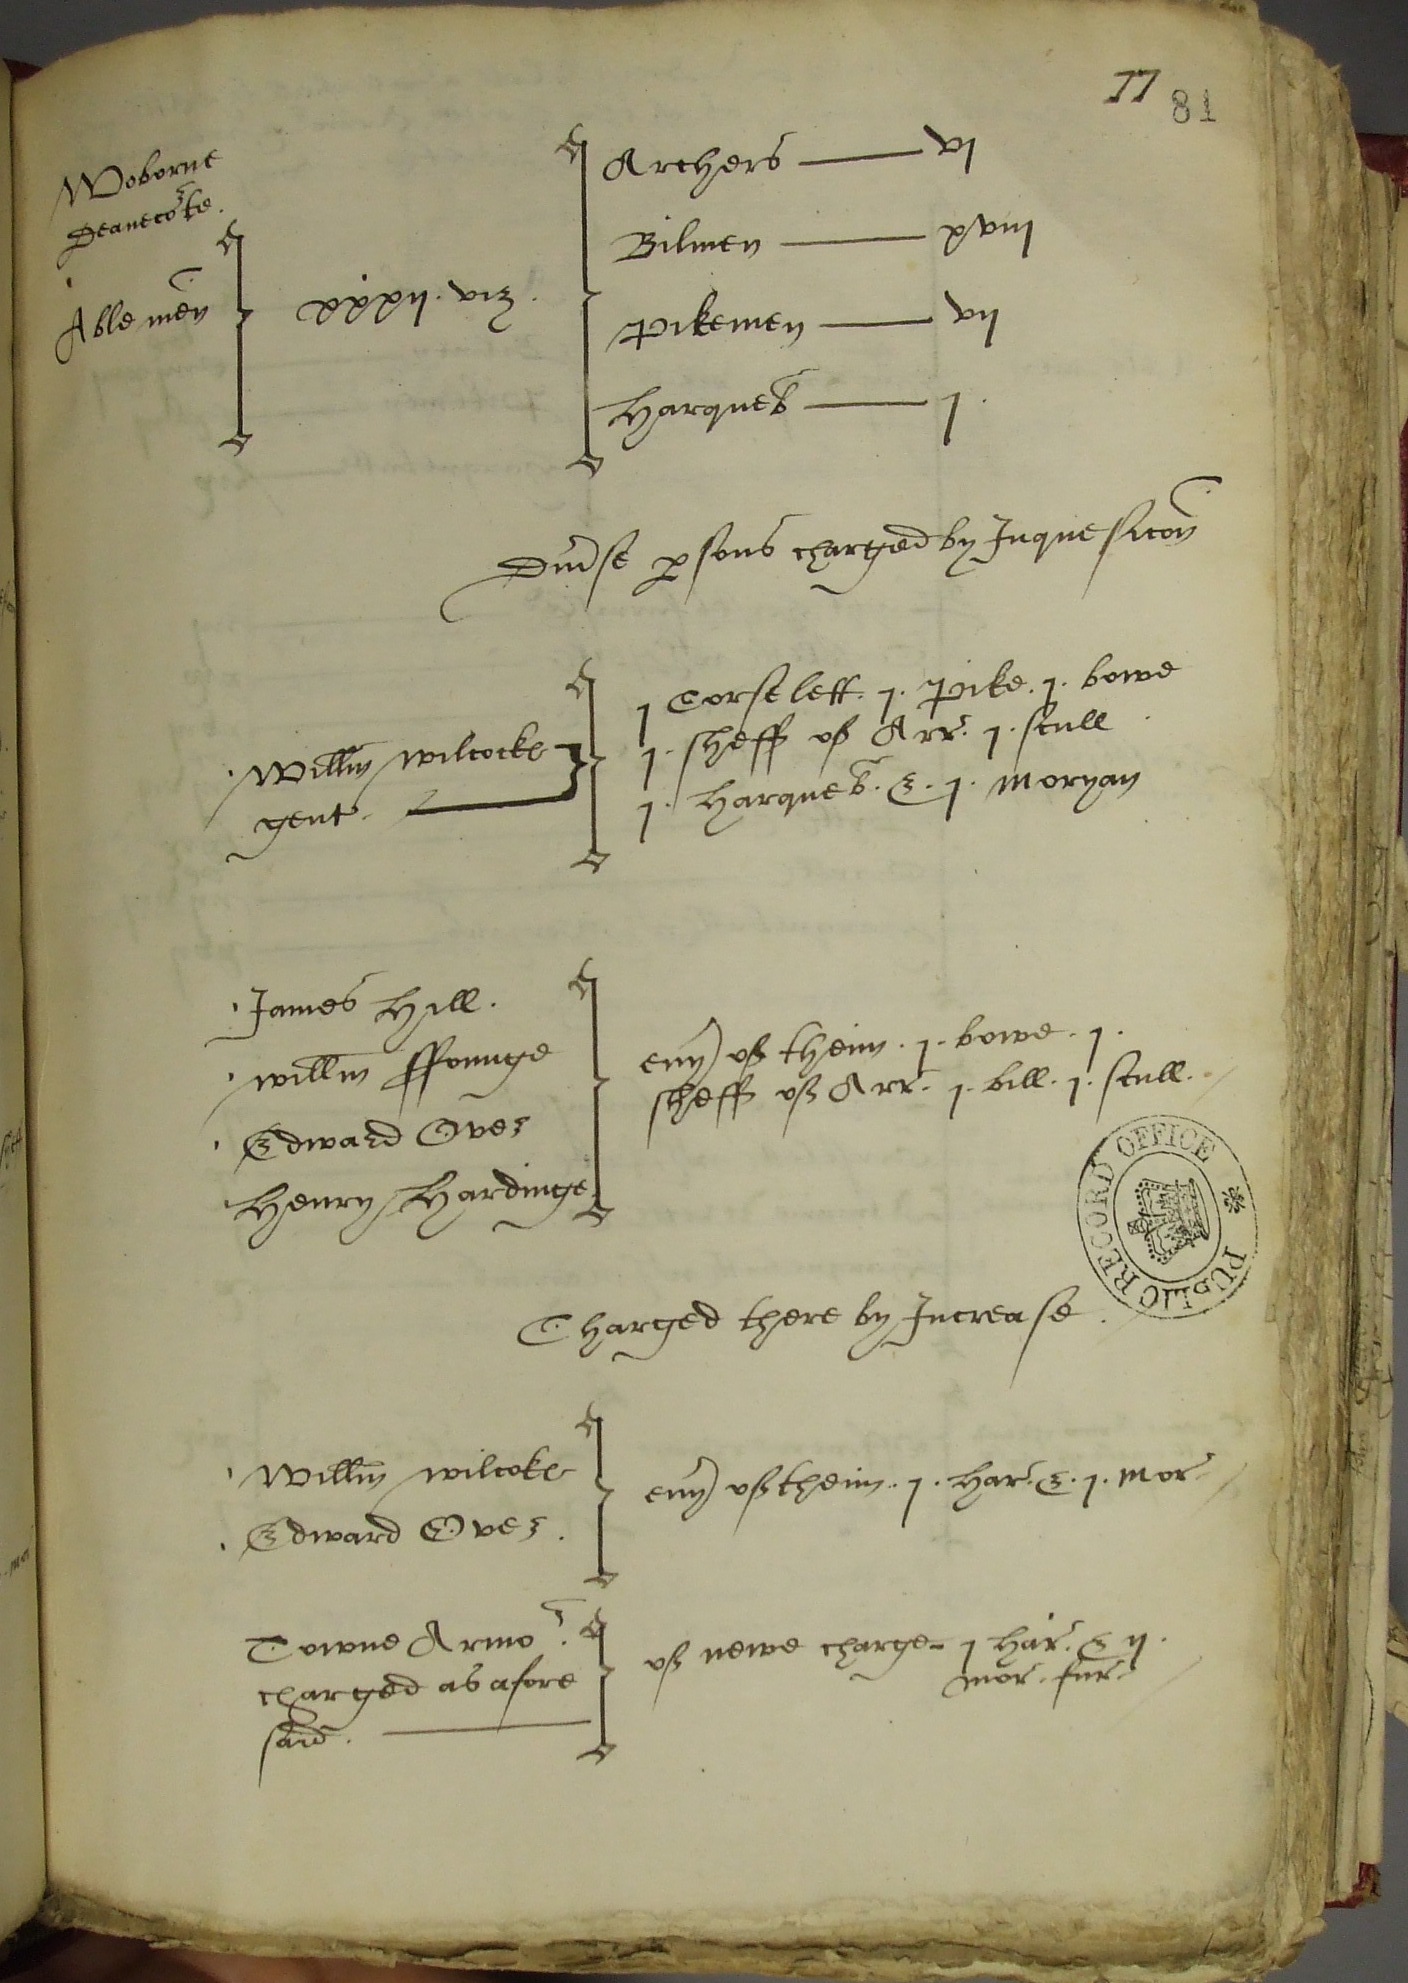 77
81
Woborne
Deanecorte.
Able men
xxxij. viz.
Archers — vj
Bilmen — xviij
Pikemen — vij
Harqueb — j.
Div'se p'sons charged by Inquesicon
Willm Wilcocke
gent.
j Corselett. j. Pike. j. bowe
j. sheff of Arr. j. scull
j. harqueb. & . j. moryan
James Hill.
Willm ffounge
Edward Over
Henry Hardinge
eu'y of theim. j. bowe. j.
sheff of Arr. j. bill. j. scull.
PUBLIC RECORD OFFICE
Charged there by Increase.
Willm Wilcoke
Edward Over.
eu'y of theim. j. har. & . j. mor.
Towne Armor.
charged as afore
said.
of newe charge j har. & ij.
mor. fur.